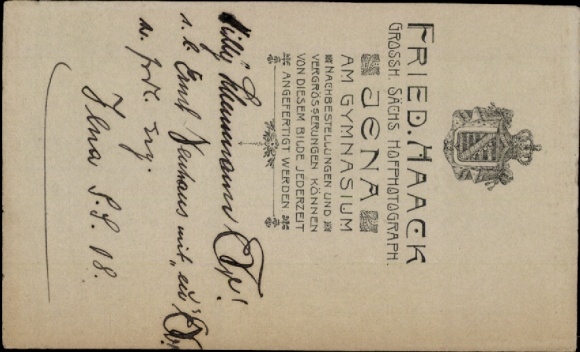 FRIED. HAACK
GROSSH. SÄCHS. HOFPHOTOGRAPH.
JENA
AM GYMNASIUM
NACHBESTELLUNGEN UND
VERGRÖSSERUNGEN KÖNNEN
VON DIESEM BILDE JEDERZEIT
ANGEFERTIGT WERDEN
Willy
s. lb. Ernst Neuhaus mit „ein"
z. frdl. Erg.
Jena S.S. 08.